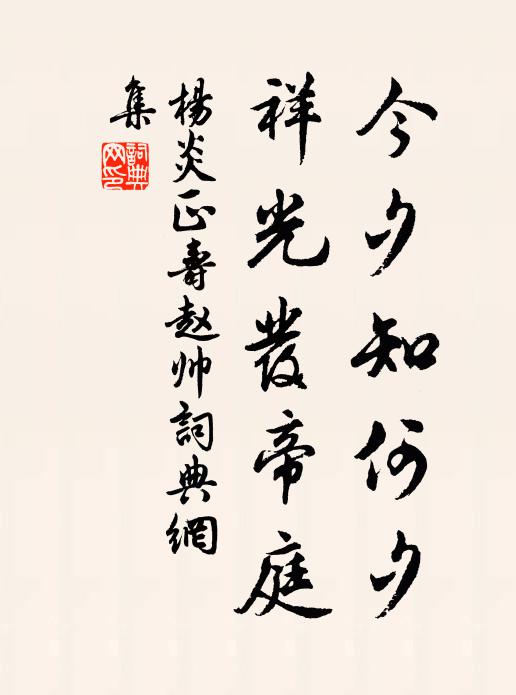 今夕知何夕
祥光發帝庭
楊炎正壽赵帅詞典網
集
詞典网印